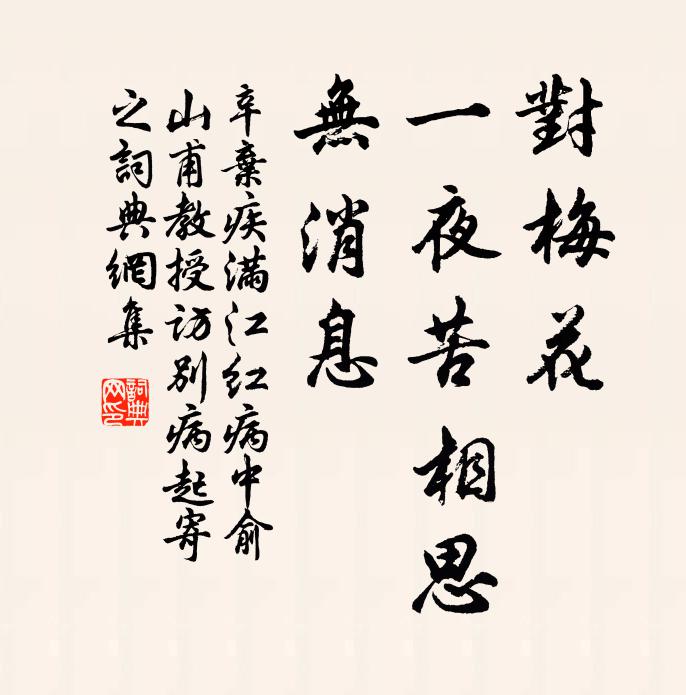 對梅花
一夜苦相思
無消息
辛棄疾滿江红病中俞
山甫教授訪別病起寄
之詞典網集
詞典
网印